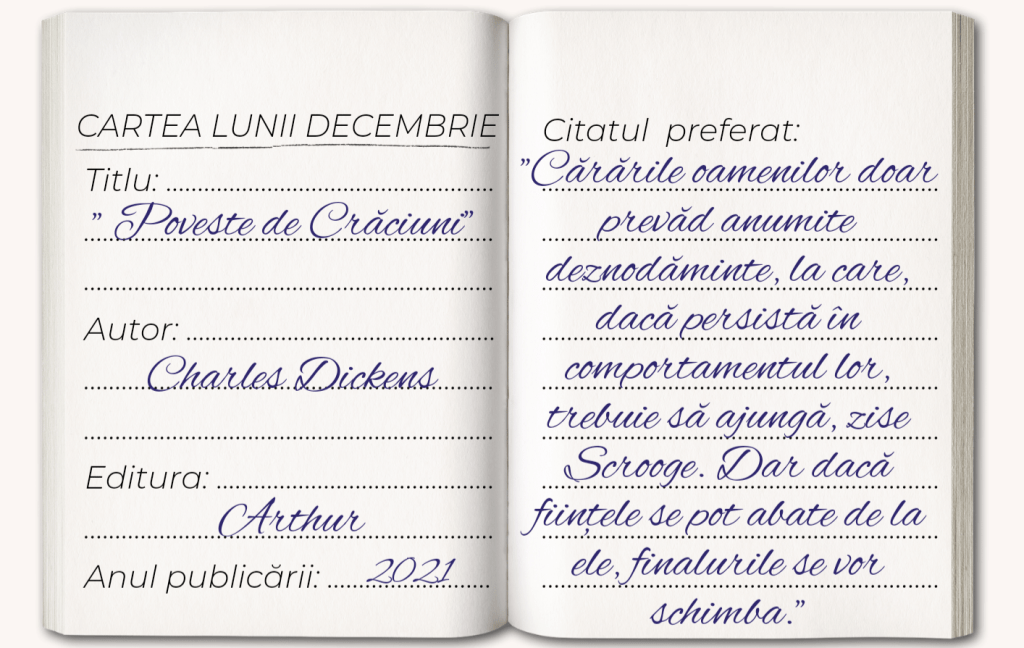 CARTEA LUNII DECEMBRIE
Titlu: ..........
" Poveste de Crăciuni"
Autor: ..........
Charles Dickens
Editura: ..........
Arthur
Anul publicării: ..... 2021
Citatul preferat:
"Cărările oamenilor doar
prevăd anumite
deznodăminte, la care,
dacă persistă în
comportamentul lor,
trebuie să ajungă, zise
Scrooge. Dar dacă
ființele se pot abate de la
ele, finalurile se vor
schimba."